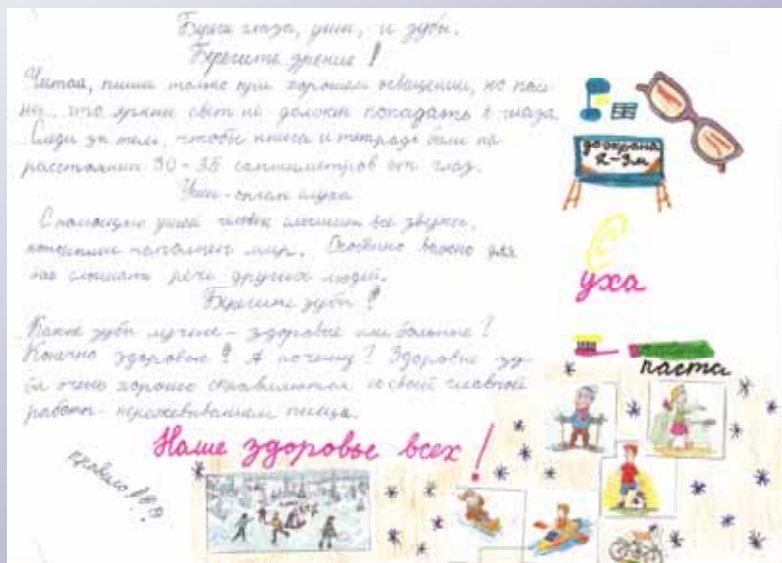 Береги глаза, уши, и зубы.
Берегите зрение!
Читай, пиши только при хорошем освещении, но пом-
ни, что яркий свет не должен попадать в глаза.
Следи за тем, чтобы книга и тетрадь были на
расстоянии 30-35 сантиметров от глаз.
Уши-орган слуха
С помощью ушей человек слышит все звуки,
которыми наполнен мир. Особенно важно для
нас слышать речь других людей.
Берегите зубы!
Какие зубы лучше - здоровые или больные?
Конечно здоровые! А почему? Здоровые зу-
бы очень хорошо справляются со своей главной
работой - пережёвыванием пищи.
до экрана
2-3м
уха
паста
Наше здоровье всех!
правило